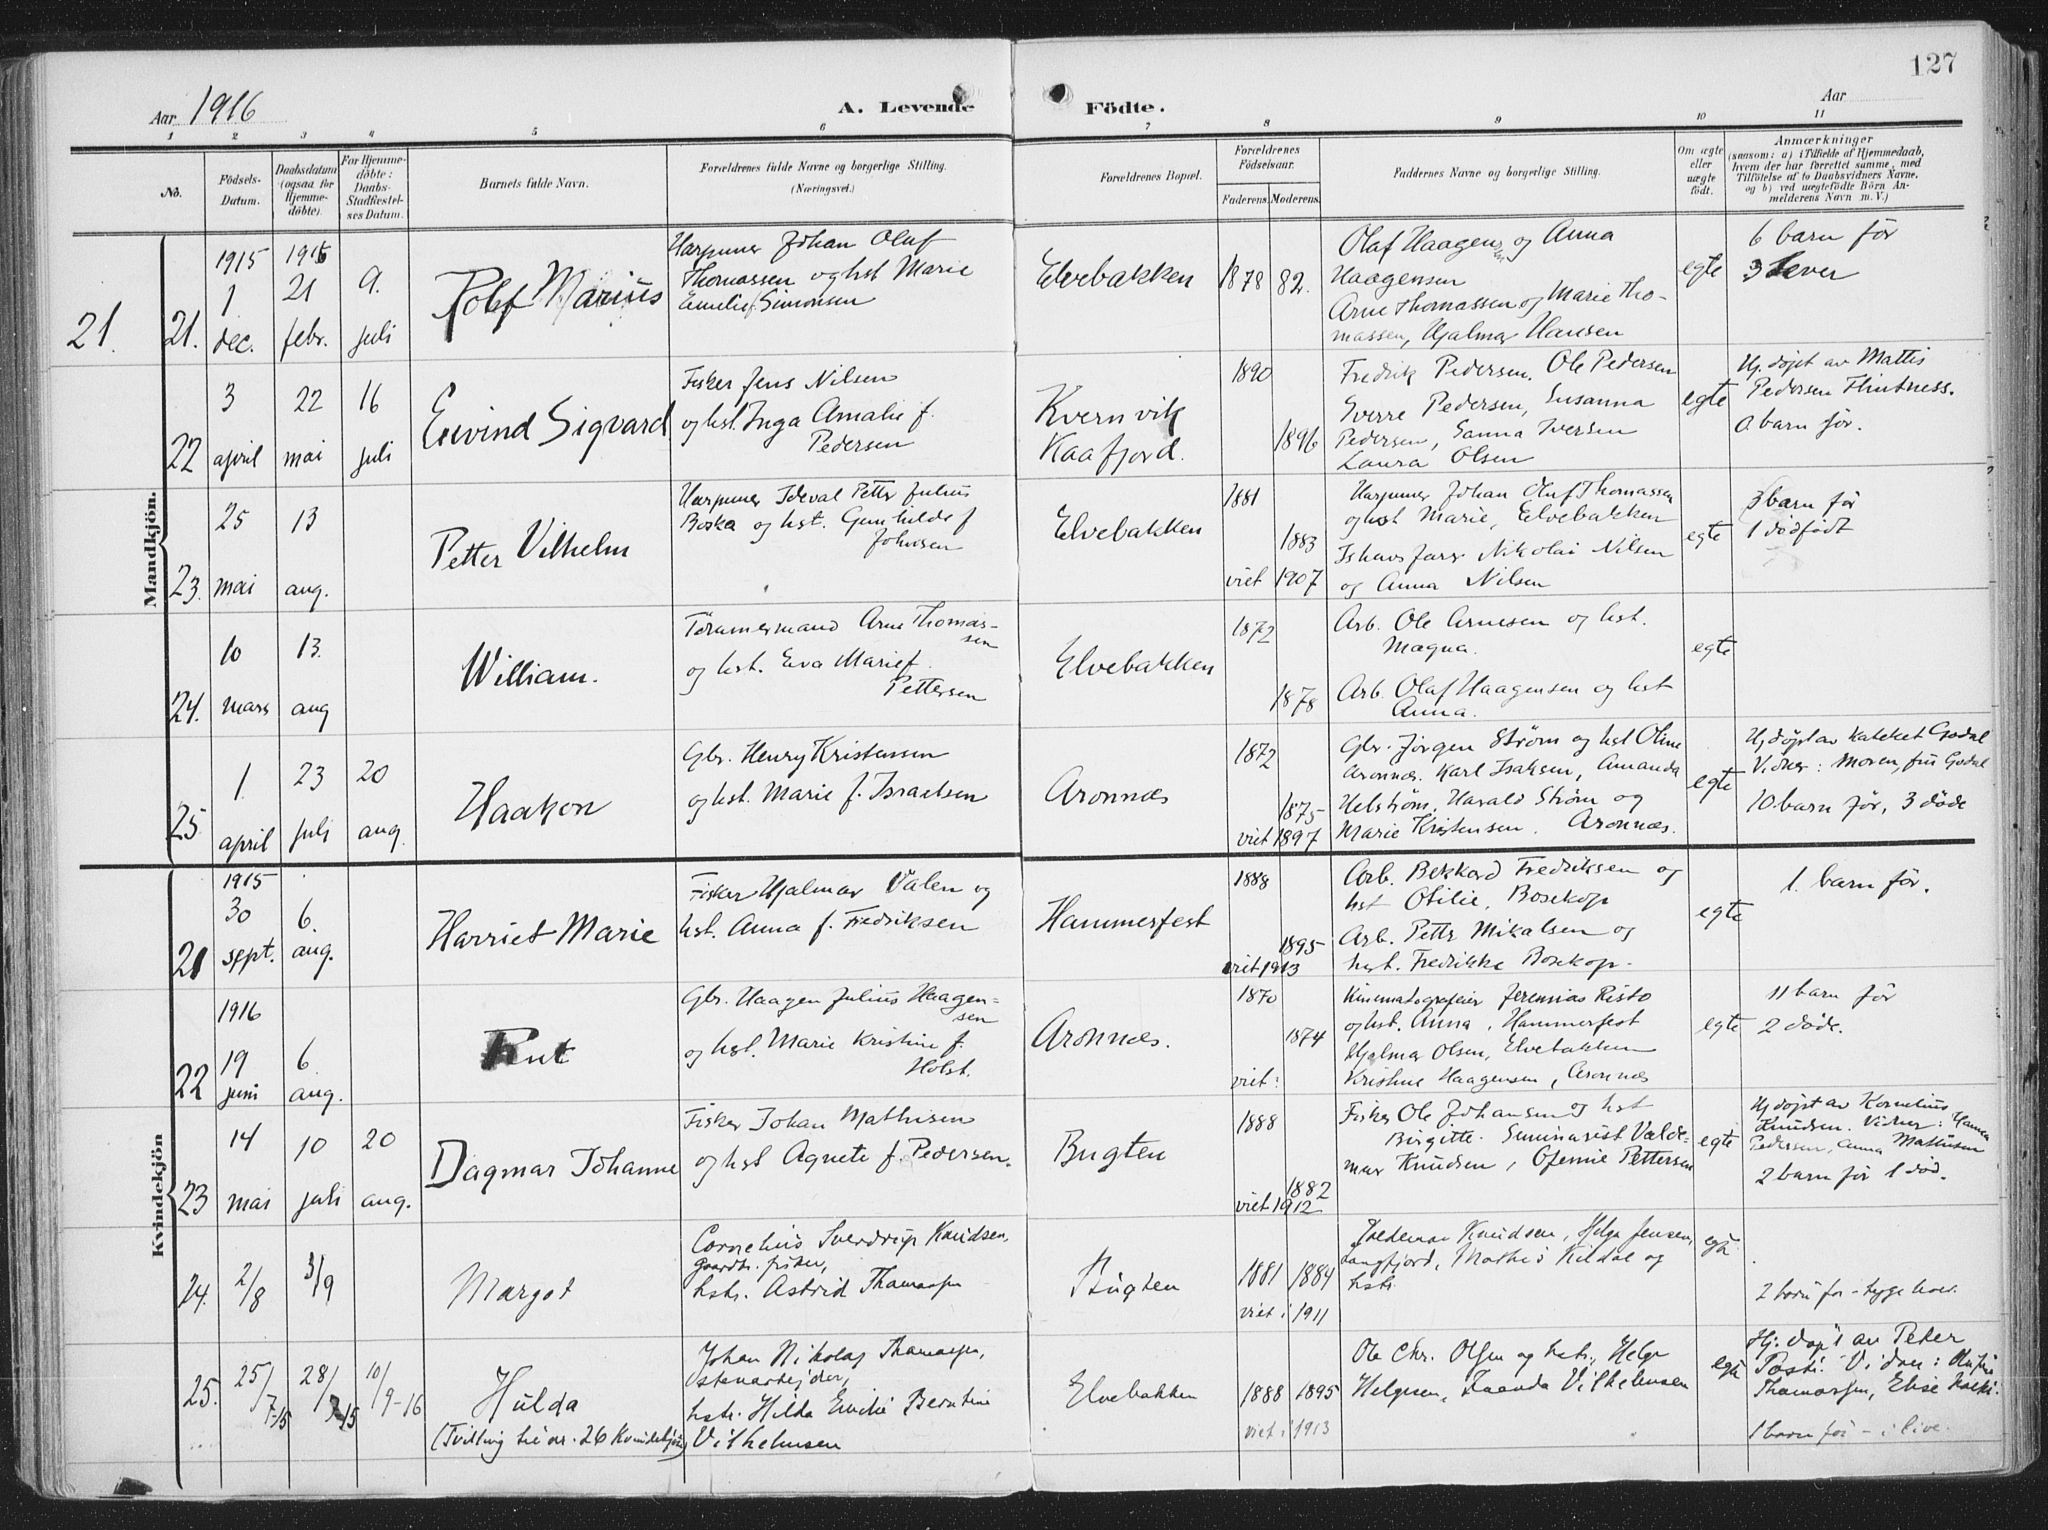 127
Aar 1916
A. Levende Födte.
Aar
1 2 3 4 5 6 7 8 9 10 11
No.
Födsels-
Datum.
Daabsdatum
(ogsaa for
Hjemme-
döbte).
For Hjemme-
döbte:
Daabs-
Stadfæstel-
ses Datum.
Barnets fulde Navn.
Forældrenes fulde Navne og borgerlige Stilling.
(Næringsvei.)
Forældrenes Bopæl.
Forældrenes
Födselsaar.
Faderens. Moderens.
Faddernes Navne og borgerlige Stilling.
Om ægte
eller
uægte
födt.
Anmærkninger
(saasom: a) i Tilfælde af Hjemmedaab,
hvem der har forrettet samme, med
Tilföielse af to Daabsvidners Navne,
og b) ved uægtefödte Börn An-
melderens Navn m. V.)
Mandkjön.
21.
21.
1915
1
dec.
1916
21
febr.
9.
juli
Rolf Marius
Harpuner Johan Oluf
Thomassen og hst Marie
Emelie f. Simonsen
Elvebakken
1878 82.
Olaf Haagensen og Anna
Haagensen
Arne Thomassen og Marie Tho-
massen, Hjalmar Hansen
egte
6 barn før
3 lever
22
3
april
22
mai
16
juli
Eivind Sigvard
Fisker Jens Nilsen
og hst Inga Amalie f.
Pedersen
Kvernvik
Kaafjord.
1890
1896
Fredrik Pedersen, Ole Pedersen
Sverre Pedersen, Susanna
Pedersen, Sanna Iversen
Laura Olsen
egte
Hj. døpt av Mattis
Pedersen Flintness.
0 barn før.
23.
25
mai
13
aug.
Petter Vilhelm
Harpuner Ideval Petter Julius
Boska og hst. Gunhilde f
Johnsen
Elvebakken
1881
1883
viet 1907
Harpuner Johan Oluf Thomassen
og hst Marie, Elvebakken
Ishavsfarer Nikolai Nilsen
og Anna Nilsen
egte
3 barn før
1 dødfødt
24.
10
mars
13.
aug
William.
Tømmermand Arne Thomas-
sen
og hst. Eva Marie f.
Pettersen
Elvebakken
1872
1878
Arb. Ole Arnesen og hst.
Magna.
Arb. Olaf Haagensen og hst
Anna.
egte
25
1.
april
23
juli
20
aug.
Haakon
Gbr. Henry Kristensen
og hst. Marie f. Israelsen
Aronnæs
1872
1875
viet 1897
Gbr. Jørgen Strøm og hst Oline
Aronnæs. Karl Isaksen, Amanda
Helstrøm, Harald Strøm og
Marie Kristensen. Aronnæs.
egte
Hj døpt av kateket Godal
Vidner: Moren, fru Godal
10 barn før, 3 døde
Kvindekjön
21
1915
30
sept.
6.
aug.
Harriet Marie
Fisker Hjalmar Valen og
hst. Anna f. Fredriksen
Hammerfest
1888
1895
viet 1913
Arb. Bekkard Fredriksen og
hst Otilie, Bosekop
Arb. Petter Mikalsen og
hst. Fredrikke Bosekop.
egte
1. barn før.
22
1916
19
juni
6.
aug.
Rut
Gbr. Haagen Julius Haagen-
sen
og hst. Marie Kristine f.
Holst.
Aronnæs.
1870
1874
viet:
Kinematografeier Jeremias Risto
og hst. Anna, Hammerfest
Hjalmar Olsen, Elvebakken
Kristine Haagensen, Aronnæs
egte
11 barn før
2 døde.
23
14
mai
10
juli
20
aug.
Dagmar Johanne
Fisker Johan Mathisen
og hst Agnete f. Pedersen.
Bugten
1888
1882
viet 1912
Fisker Ole Johansen og hst
Birgitte. Seminarist Valde-
mar Knudsen, Ofenie Pettersen
egte
Hj døpt av Kornelius
Knudsen. Vidner: Hanna
Pedersen, Anna Mathisen
2 barn før 1 død.
24.
2/8
3/9
Margot
Cornelius Sverdrup Knudsen,
Gaardbr. fisker,
hstr. Astrid Thomassen
Bugten
1881 1884
viet i 1911
Valdemar Knudsen, Helga Jensen,
Langfjord, Mathis Kildal og
hstr.
egte
2 barn før - begge lever
25.
25/7-15
28/7-15
10/9-16
Hulda
(Tvilling til nr. 26 Kvindekjøn)
Johan Nikolaj Thomassen,
stenarbejder,
hstr. Hilda Emilie Berntine
Vilhelmsen
Elvebakken
1888 1895
viet i 1913
Ole Chr. Olsen og hstr., Helga
Helgesen, Vilhelmsen
egte
Hj. døpt av Peter
Posti. Vidner:
Thomassen, Elise
1 barn før - i live.